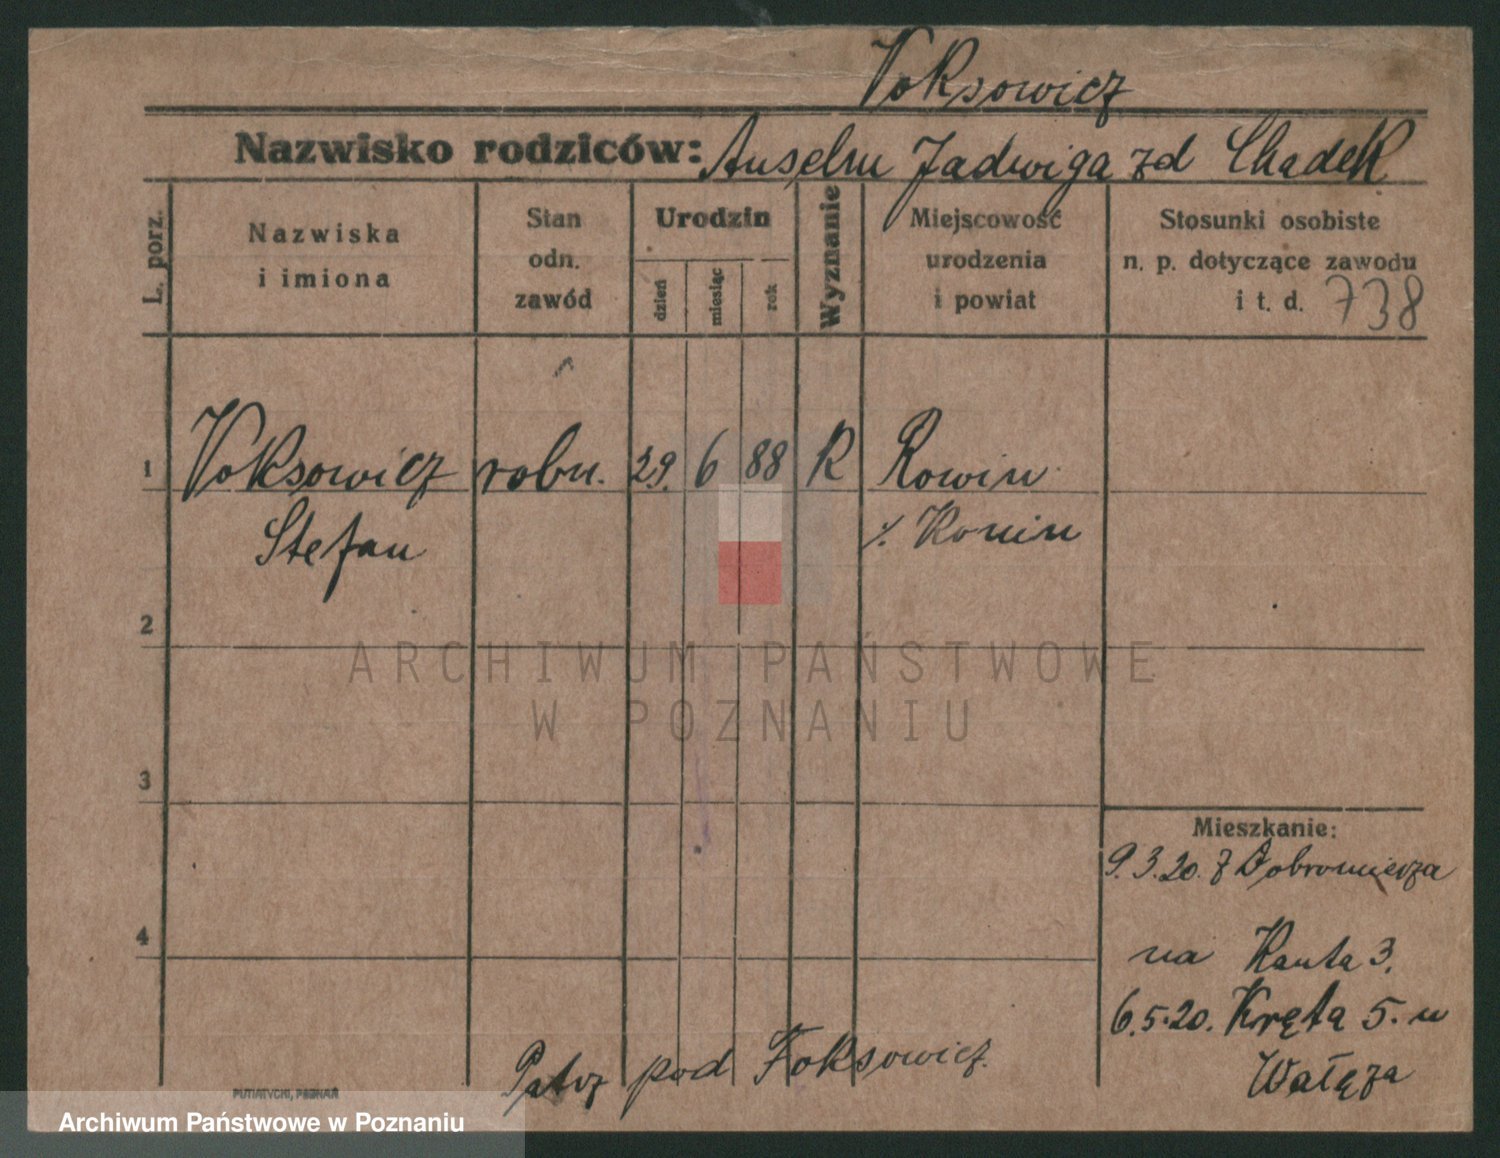 Voksowicz
Nazwisko rodziców: Anselm Jadwiga zd Chadek
L. porz.
Nazwiska
i imiona
Stan
odn.
zawód
Urodzin
dzień
miesiąc
rok
Wyznanie
Miejscowość
urodzenia
i powiat
Stosunki osobiste
n. p. dotyczące zawodu
i t. d. 738
1 Voksowicz robn. 29. 6 88 R Rowin
Stefan ./. Konin
2
ARCHIWUM PAŃSTWOWE
W POZNANIU
3
Mieszkanie:
9.3.20. z Dobromierza
4
na Kanta 3.
6.5.20. Kręta 5. u
Wałęza
Patrz pod Foksowicz.
PUTIATYCKI, POZNAŃ
Archiwum Państwowe w Poznaniu